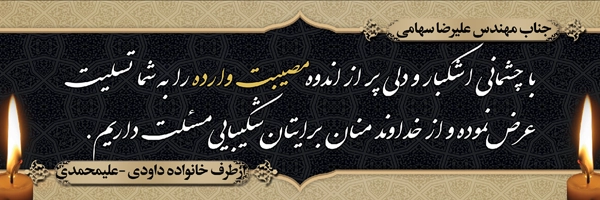 جناب مهندس علیرضا سهامی
با چشمانی اشکبار و دلی پر از اندوه مصیبت وارده را به شما تسلیت
عرض نموده و از خداوند منان برایتان شکیبایی مسئلت داریم .
ازطرف خانواده داودی -علیمحمدی